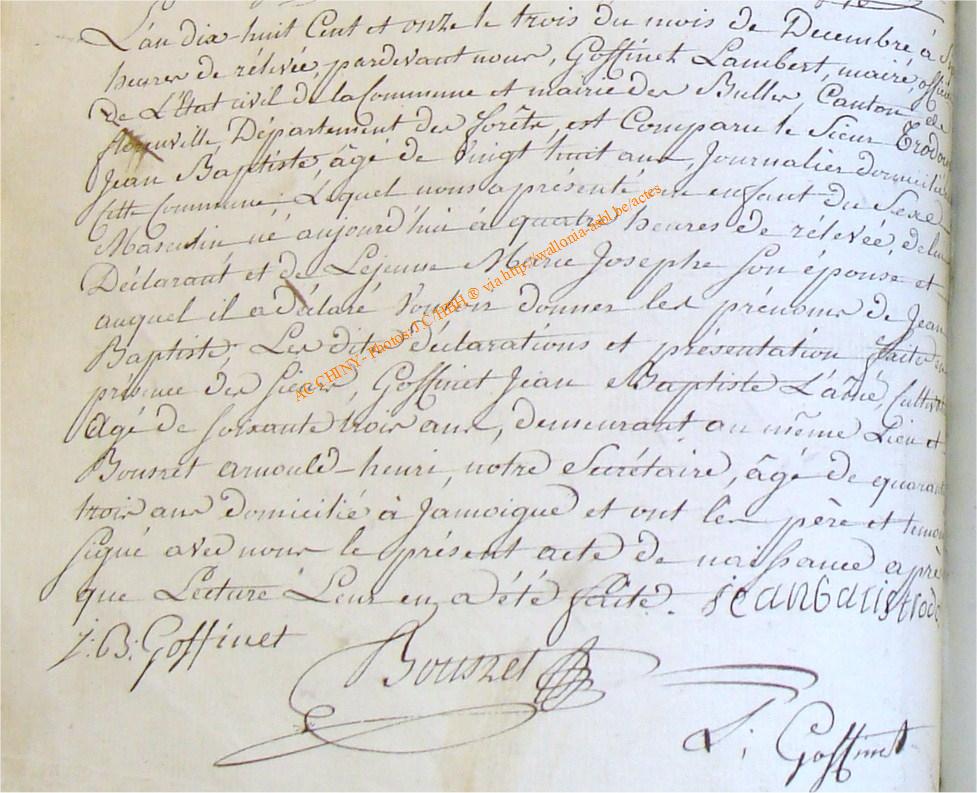 L'an dix huit Cent et onze le trois du mois de Decembre à
heures de rélevée, pardevant nous, Goffinet Lambert, maire, officier
De L'Etat civil de la Commune et mairie des Bulles, Canton de
florenville, Département des forêts, est Comparu le Sieur
Jean Baptiste, âgé de Vingt huit ans, Journalier domicilié
cette Commune Léquel nous a présenté un enfant du Sexe
Masculin né aujourd'hui à quatre heures de rélevée, de lui
Déclarant et de Léjeune Marie Josephe son épouse et
auquel il a déclaré Vouloir donner les prénoms de Jean
Baptiste, Les dites déclarations et présentation faites en
présence des Sieurs, Goffinet Jean Baptiste L'aîné,
âgé de soixante trois ans, demeurant au même Lieu et
Bousret arnould-henri, notre Secrétaire, âgé de quarante
trois ans domicilié à Jamoigne et ont les père et temoins
signé avec nous le présent acte de naissance après
que Lecture Leur en a été faite. jeanbatis
J: B: Goffinet
Bousret
L: Goffinet
AC CHINY - Photos TC HBH ® via http://wallonia-asbl.be/actes